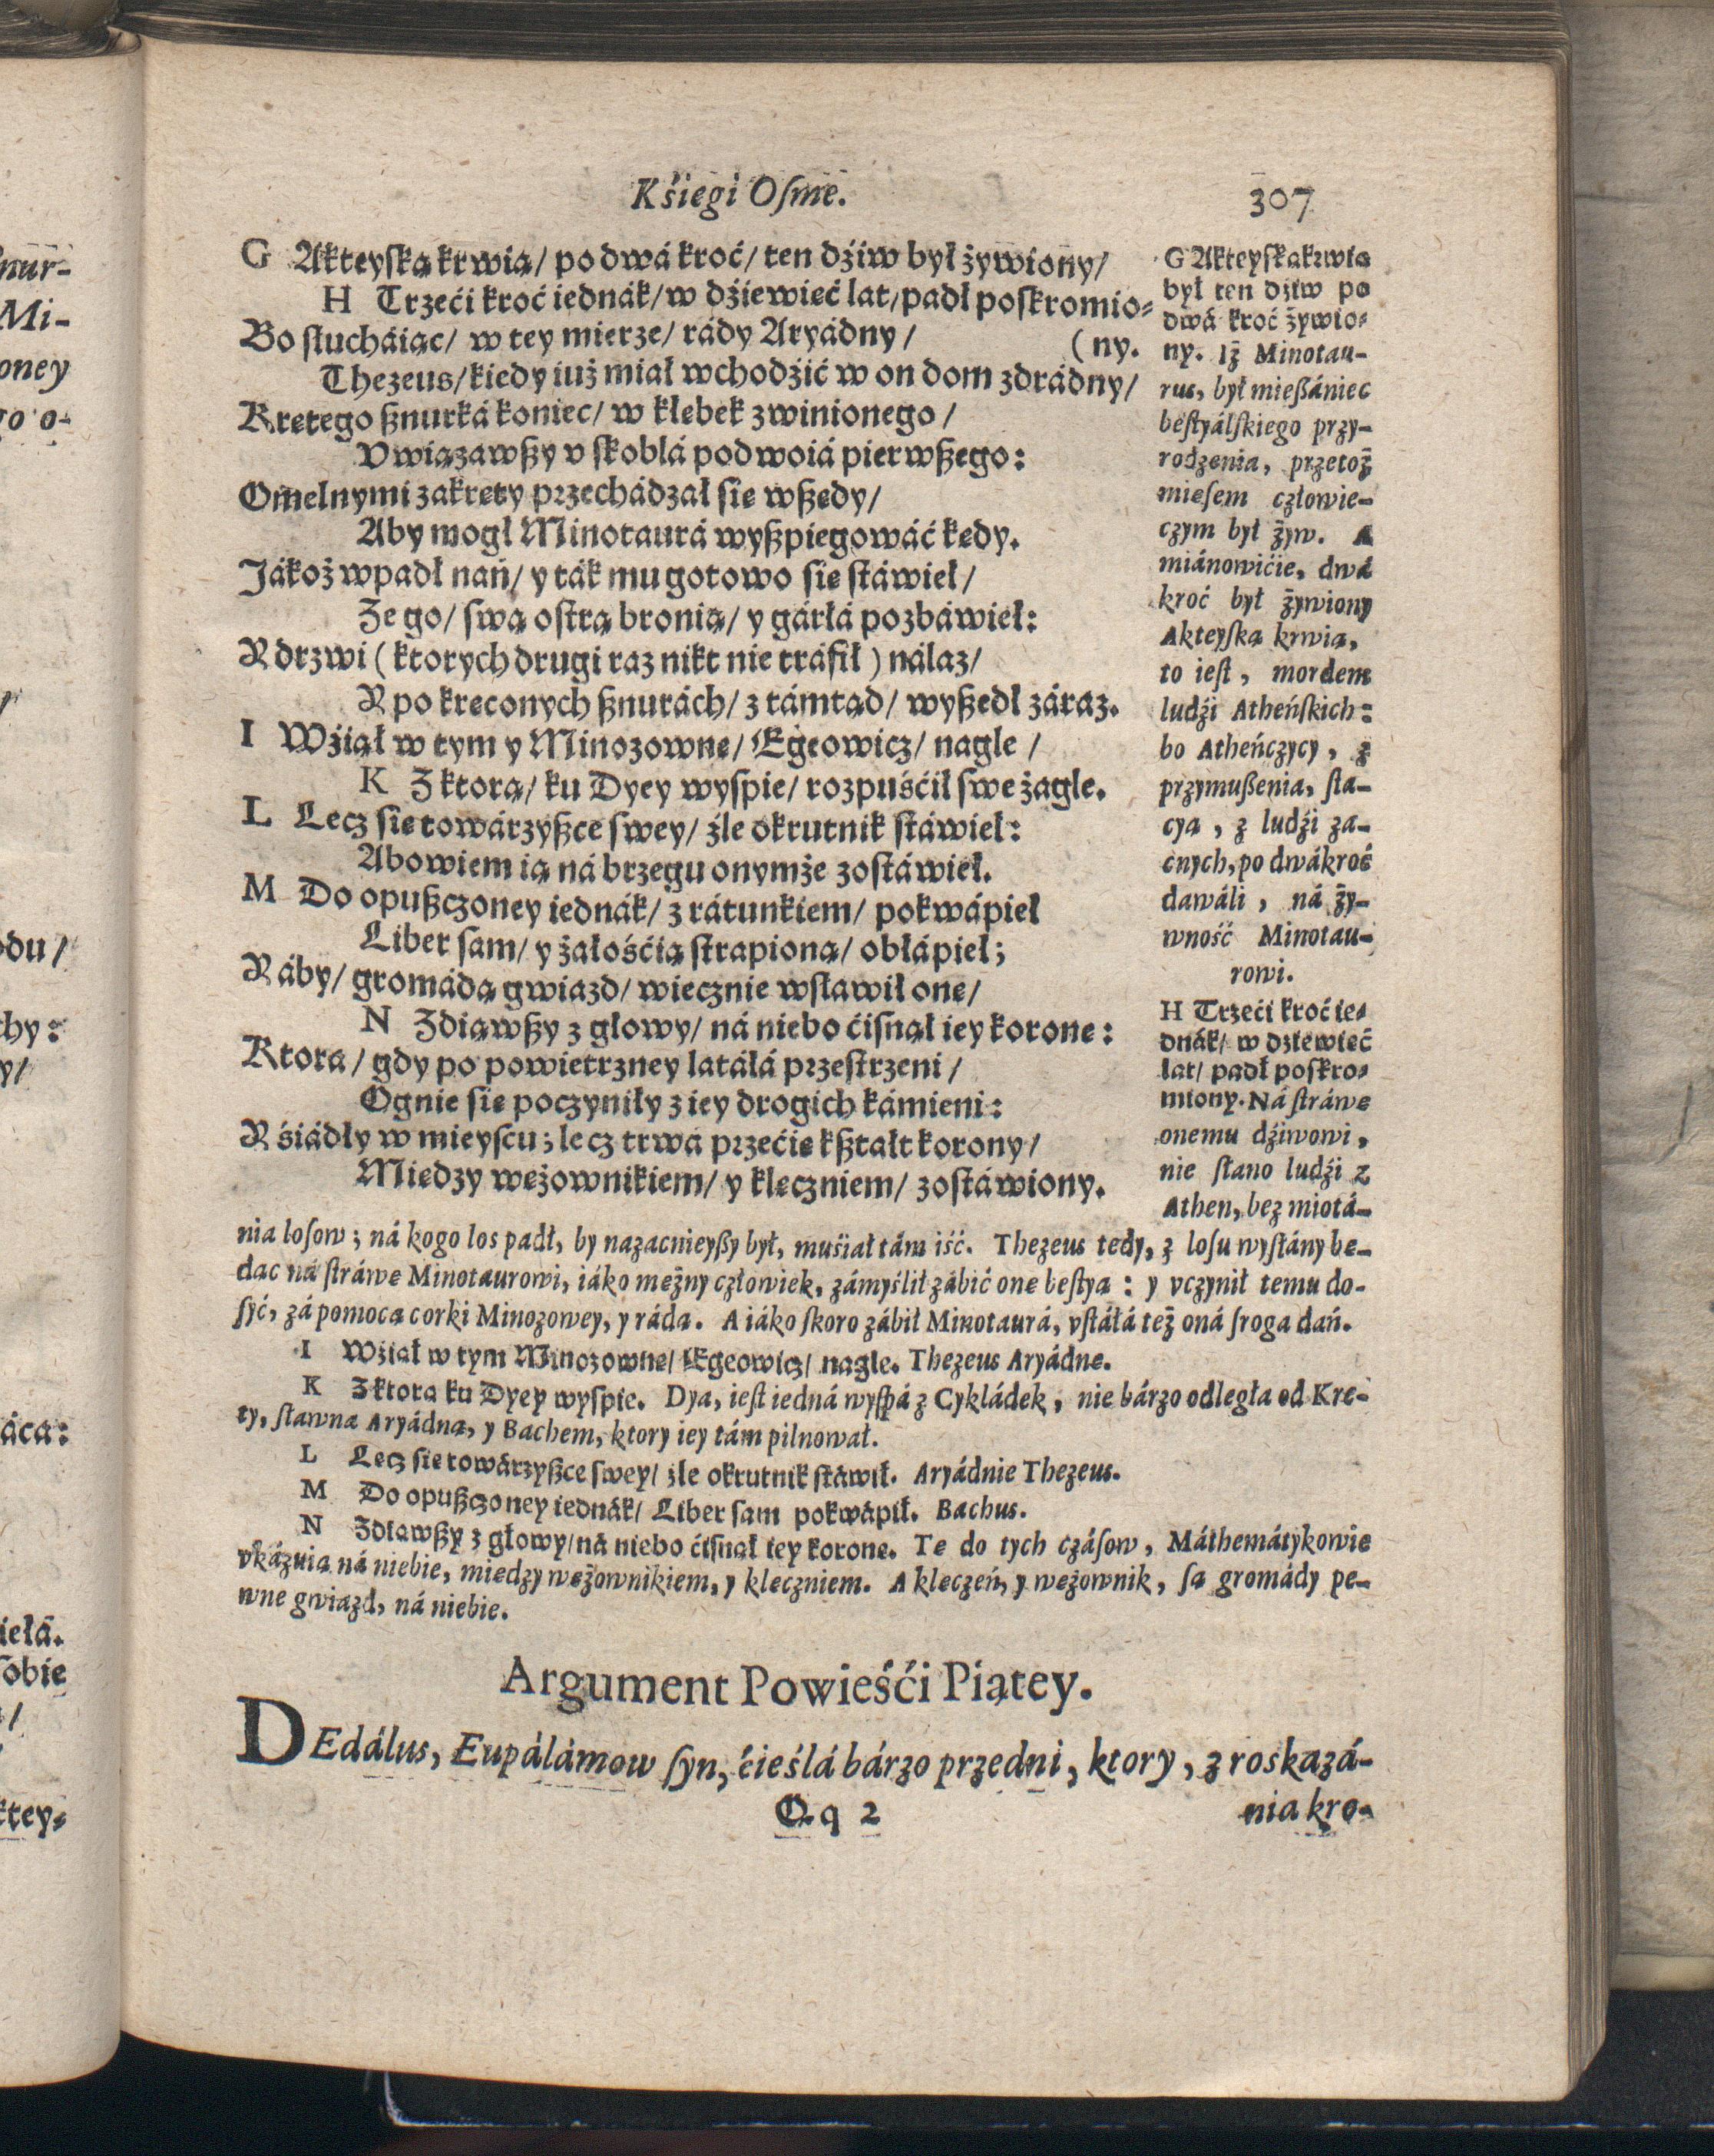 Kśiegi Oſme.
307
G Akteyſką krwią/ po dwá kroć/ ten dźiw był żywiony/
H Trzeći kroć iednák/ w dźiewieć lat/ padł poſkromio-
Bo ſłucháiąc/ w tey mierze/ rády Aryádny/ (ny.
Thezeus/ kiedy iuż miał wchodźić w on dom zdrádny/
Kretego ßnurká koniec/ w kłebek zwinionego/
Vwiązawßy v ſkoblá podwoiá pierwßego:
Omelnymi zakrety przechádzał ſie wßedy/
Aby mogł Minotaurá wyßpiegowáć kedy.
Jákoż wpadł nań/ y ták mu gotowo ſie ſtáwieł/
Że go/ ſwą oſtrą bronią/ y gárłá pozbáwieł:
Y drzwi (ktorych drugi raz nikt nie tráfił) nálaz/
Y po kreconych ßnurách/ z támtąd/ wyßedł záraz.
I Wźiął w tym y Minozowne/ Egeowicz/ nagle/
K Z ktorą/ ku Dyey wyſpie/ rozpuśćił ſwe żagle.
L Lecz ſie towárzyßce ſwey/ źle okrutnik ſtáwieł:
Abowiem ią ná brzegu onymże zoſtáwieł.
M Do opußczoney iednák/ z rátunkiem/ pokwápieł
Liber ſam/ y żałośćią ſtrapioną/ obłápieł;
Y áby/ gromádą gwiazd/ wiecznie wſławił one/
N Zdiąwßy z głowy/ ná niebo ćiſnął iey korone:
Ktora/ gdy po powietrzney latáłá przeſtrzeni/
Ognie ſie poczyniły z iey drogich kámieni:
Y śiádły w mieyſcu; lecz trwa przećie kßtałt korony/
Miedzy weżownikiem/ y kleczniem/ zoſtáwiony.
G Akteyſką krwią
był ten dźiw po
dwá kroć żywio-
ny. Iż Minotau-
rus, był mießániec
beſtyálſkiego przy-
rodzenia, przetoż
mieſem człowie-
czym był żyw. A
miánowićie, dwá
kroć był żywiony
Akteyſką krwią,
to ieſt, mordem
ludźi Atheńſkich:
bo Atheńczycy, z
przymußenia, ſta-
cyą, z ludźi za-
cnych, po dwákroć
dawáli, ná ży-
wność Minotau-
rowi.
H Trzeći kroć ie-
dnák/ w dziewieć
lat/ padł poſkro-
miony. Ná ſtráwe
onemu dźiwowi,
nie ſłano ludźi z
Athen, bez miotá-
nia loſow; ná kogo los padł, by nazacnieyßy był, muśiał tám iść. Thezeus tedy, z loſu wyſłány be-
dąc ná ſtráwe Minotaurowi, iáko meżny człowiek, zámyślił zábić one beſtyą: y vczynił temu do-
ſyć, zá pomocą corki Minozowey, y rádą. A iáko ſkoro zábił Minotaurá, vſtáłá też oná ſroga dań.
I Wźiął w tym Minozowne/ Egeowicz/ nagle. Thezeus Aryádne.
K Z ktorą ku Dyey wyſpie. Dya, ieſt iedná wyſpá z Cykládek, nie bárzo odległa od Kre-
ty, ſławna Aryádną, y Bachem, ktory iey tám pilnował.
L Lecz ſie towárzyßce ſwey/ źle okrutnik ſtáwił. Aryádnie Thezeus.
M Do opußczoney iednák/ Liber ſam pokwápił. Bachus.
N Zdiąwßy z głowy/ ná niebo ćiſnął iey korone. Te do tych czáſow, Máthemátykowie
vkázuią ná niebie, miedzy weżownikiem, y kleczniem. A kleczeń, y weżownik, ſą gromády pe-
wne gwiazd, ná niebie.
Argument Powieśći Piątey.
DEdálus, Eupálámow ſyn, ćieślá bárzo przedni, ktory, z roskazá-
Qq 2
nia kro-